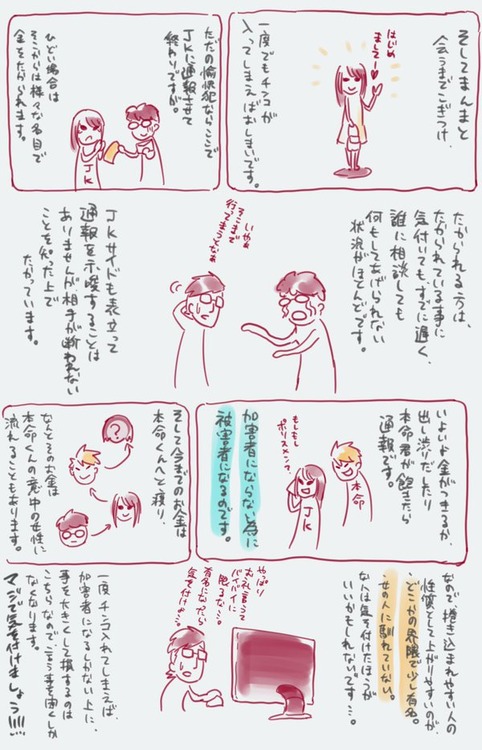 そしてまんまと
会うまでこぎつけ、
はじめ
まして〜♡
一度でもチンコが
入ってしまえばおしまいです。
ただの愉快犯ならここで
JKに通報させて
終わりですが。
ひどい場合は
そこからは様々な名目で
金をたかられます。
JK
たかられる方は、
たかられている事に
気付いても、すでに遅く、
誰に相談しても
何もしてあげられない
状況がほとんどです。
いやぁ
そこまで
行ってまうとなぁ
JKサイドも表立って
通報を示唆することは
ありませんが相手が断われない
ことを知った上で
たかっています。
いよいよ金がつきるか、
出し渋りだしたり
本命君が飽きたら
通報です。
本命
JK
もしもし
ポリスメン?
加害者にならない為に
被害者になるのです。
そして今までのお金は
本命くんへと渡り、
?
なんとそのお金は
本命くんの意中の女性に
流れることもあります。
なので、捲き込まれやすい人の
性質として上がりやすいのが、
・どこかの界隈で少し有名。
・女の人に馴れていない。
な人は気を付けたほうが
いいかもしれないです…。
やっぱり
お礼言って
バイバイに
限るな…。
有名になったら
気を付け…。
一度チンコ入れてしまえば、
加害者になるしかない上に、
事を大きくして損するのは
こちらなのでこう事を聞くしか
なくなります。
マジで気を付けましょう!!!!!